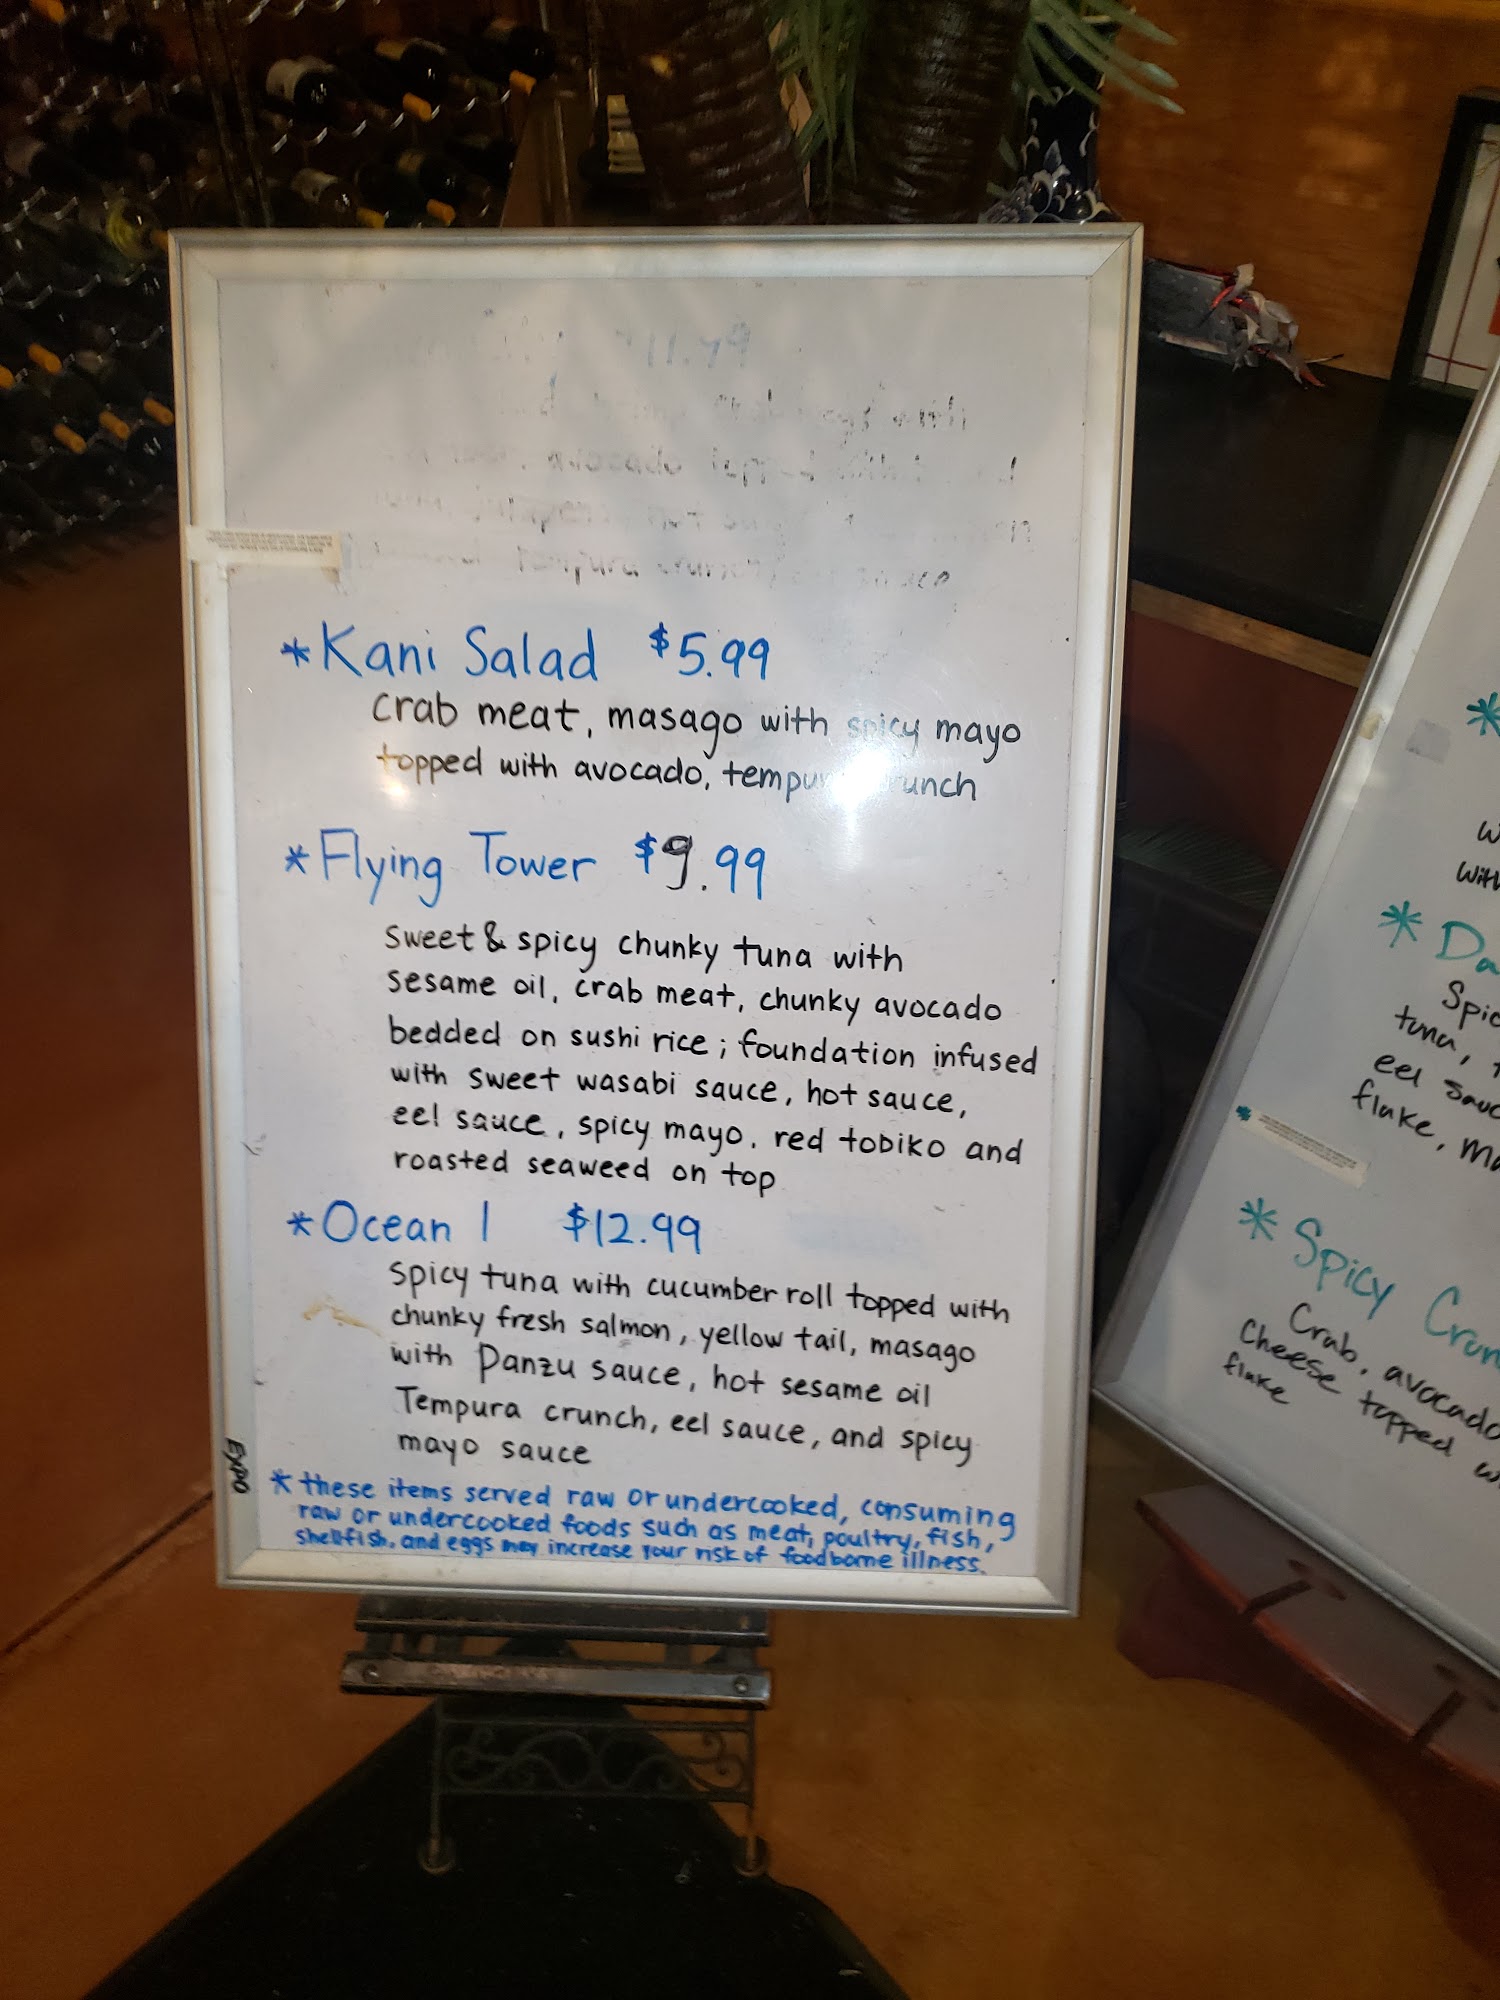 11.49
with
avocado
tempura crunch
*Kani Salad $5.99
crab meat, masago with spicy mayo
topped with avocado, tempura crunch
*Flying Tower $9.99
sweet & spicy chunky tuna with
sesame oil, crab meat, chunky avocado
bedded on sushi rice; foundation infused
with sweet wasabi sauce, hot sauce,
eel sauce, spicy mayo, red tobiko and
roasted seaweed on top
*Ocean 1 $12.99
spicy tuna with cucumber roll topped with
chunky fresh salmon, yellow tail, masago
with Panzu sauce, hot sesame oil
Tempura crunch, eel sauce, and spicy
mayo sauce
*these items served raw or undercooked, consuming
raw or undercooked foods such as meat, poultry, fish,
shellfish, and eggs may increase your risk of foodborne illness.
Expo
*
*
tuna,
eel
flake,
* Spicy
Crab, avocado
Cheese topped
flake